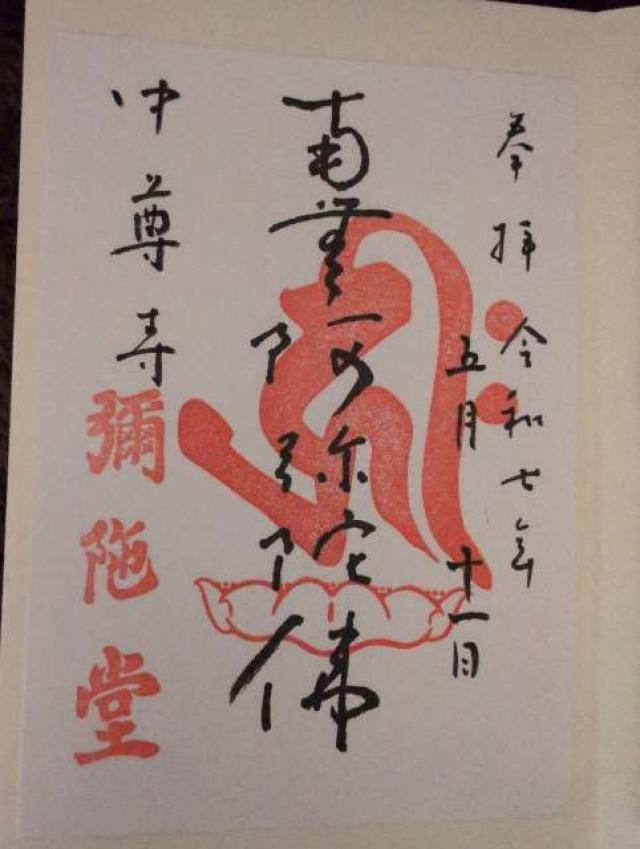 奉拝 令和七年
五月十一日
南無阿弥陀佛
中尊寺
彌陀堂